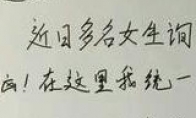 近日多名女生询
！在这里我统一